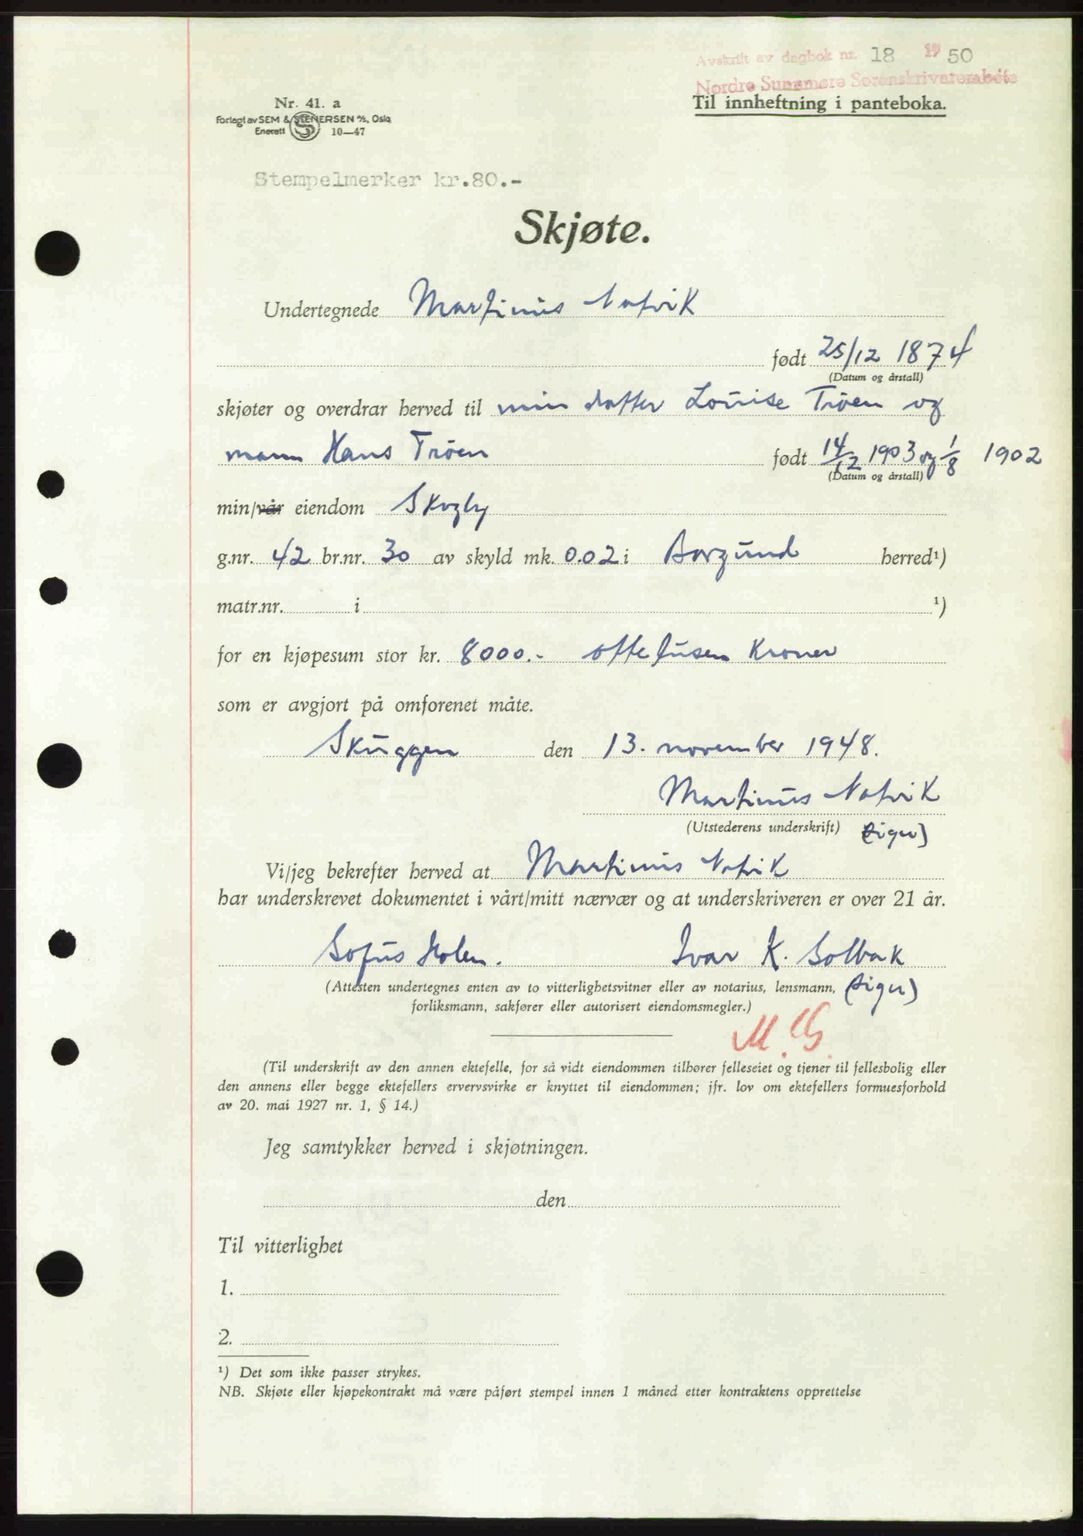 Avskrift av dagbok nr. 18 1950
Nordre Sunnmøre Sorenskriverembete
Nr. 41. a
Til innheftning i panteboka.
Forlagt av SEM & STENERSEN A/S, Oslo
Enerett 10—47
Stempelmerker kr.80.-
Skjøte.
Undertegnede Martinus Natvik
født 25/12 1874
(Datum og årstall)
skjøter og overdrar herved til min datter Louise Trøen og
mann Hans Trøen født 14/12 1903 og 1/8 1902
(Datum og årstall)
min/vår eiendom Skogly
g.nr. 42 br.nr. 30 av skyld mk. 0.02 i Borgund herred¹)
matr.nr. i ¹)
for en kjøpesum stor kr. 8000.- otte tusen kroner
som er avgjort på omforenet måte.
Skuggen den 13. november 1948.
Martinus Natvik
(Utstederens underskrift) (sign)
Vi/jeg bekrefter herved at Martinus Natvik
har underskrevet dokumentet i vårt/mitt nærvær og at underskriveren er over 21 år.
Sofus Holen. Ivar K. Solbak
(Attesten undertegnes enten av to vitterlighetsvitner eller av notarius, lensmann, (sign)
forliksmann, sakfører eller autorisert eiendomsmegler.)
(Til underskrift av den annen ektefelle, for så vidt eiendommen tilhører felleseiet og tjener til fellesbolig eller
den annens eller begge ektefellers ervervsvirke er knyttet til eiendommen; jfr. lov om ektefellers formuesforhold
av 20. mai 1927 nr. 1, § 14.)
Jeg samtykker herved i skjøtningen.
den
Til vitterlighet
1.
2.
¹) Det som ikke passer strykes.
NB. Skjøte eller kjøpekontrakt må være påført stempel innen 1 måned etter kontraktens opprettelse